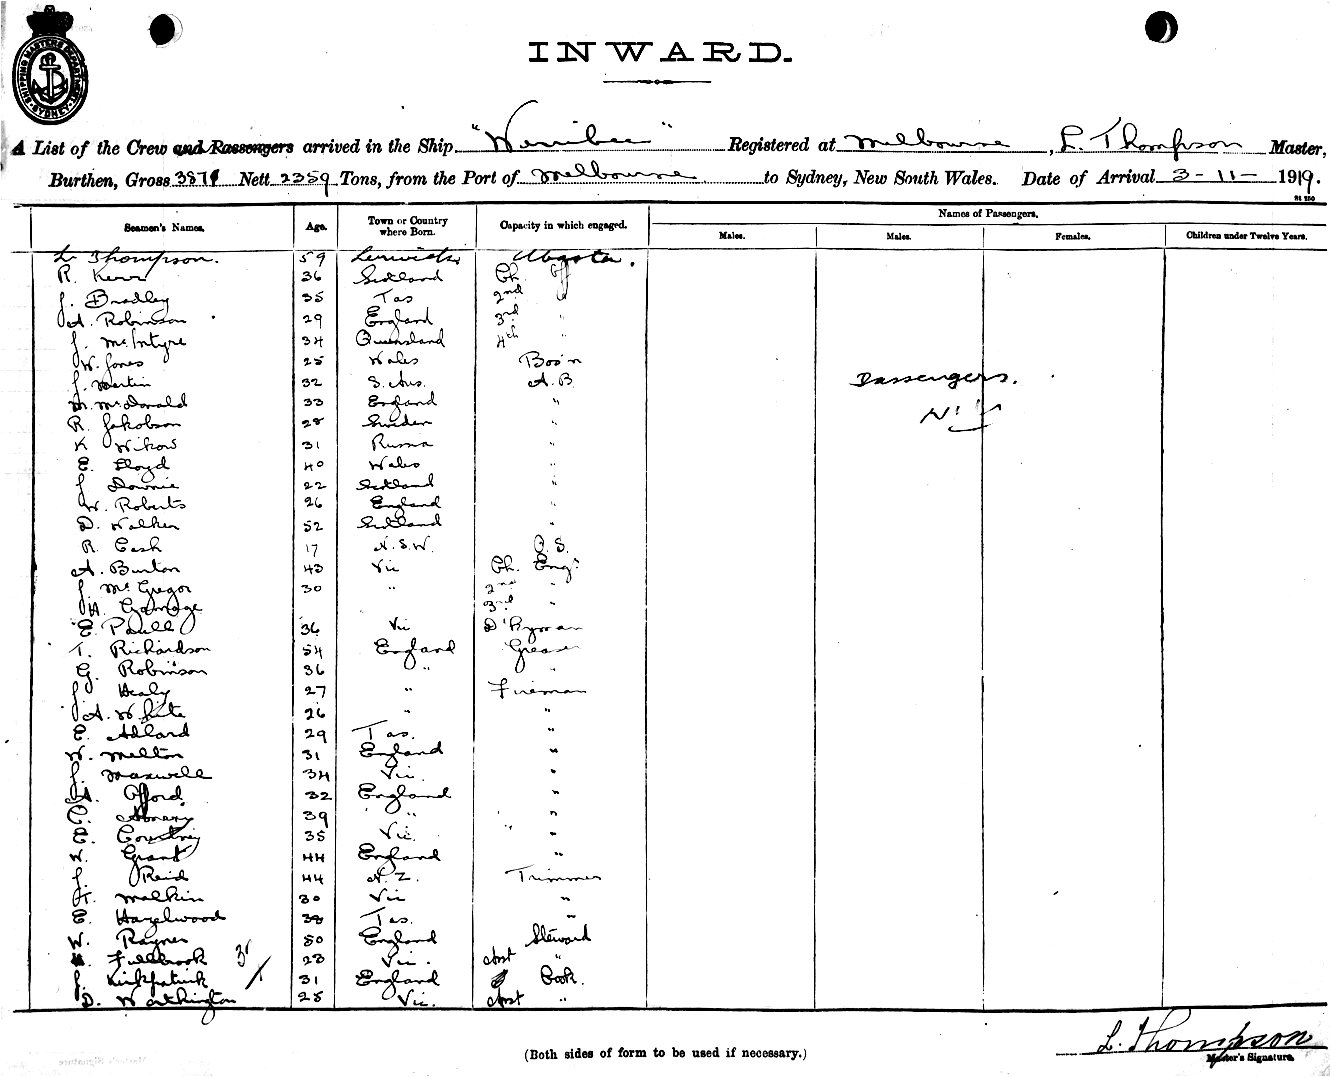 SHIPPING MASTERS DEPARTMENT SYDNEY
INWARD.
A List of the Crew and Passengers arrived in the Ship "Werribee" Registered at Melbourne, L. Thompson Master,
Burthen, Gross Nett 2359 Tons, from the Port of Melbourne to Sydney, New South Wales. Date of Arrival 3-11- 1919.
Names of Passengers.
Seamen's Names. Age. Town or Country where Born. Capacity in which engaged. Males. Males. Females. Children under Twelve Years.
L. Thompson. 59 Lerwick Master.
R. Kerr 36 Scotland Ch. Off
J. Bradley 35 Tas 2nd "
A. Robinson 29 England 3rd "
J. McIntyre 34 Queensland 4th "
W. Jones 25 Wales Bos'n
J. Martin 32 S. Aus. A.B. Passengers.
M. McDonald 33 England " Nil
R. Jakobson 28 Sweden "
K 31 Russia "
E. Lloyd 40 Wales "
J. Downie 22 Scotland "
W. Roberts 26 England "
D. Walker 52 Scotland "
R. Cash 17 N.S.W. O.S.
A. Burton 43 Vic Ch. Eng.
J. McGregor 30 " 2nd "
H. Gamage 3rd "
E. Paull 36 Vic D'kyman
T. Richardson 54 England Greaser
G. Robinson 36 " "
J. Healy 27 " Fireman
A. White 26 " "
E. Adlard 29 Tas. "
W. Melton 31 England "
J. Maxwell 34 Vic. "
A. Offord 32 England "
C. 39 " "
E. Courtney 35 Vic. "
W. Grant 44 England "
J. Reid 44 N.Z. Trimmer
Malkin 30 Vic "
E. Hazelwood 38 Tas. "
W. Rayner 50 England Steward
Fullbrook 23 Vic. Asst "
J. Kirkpatrick 31 England Cook.
D. Worthington 25 Vic. Asst "
(Both sides of form to be used if necessary.)
L. Thompson
Master's Signature.